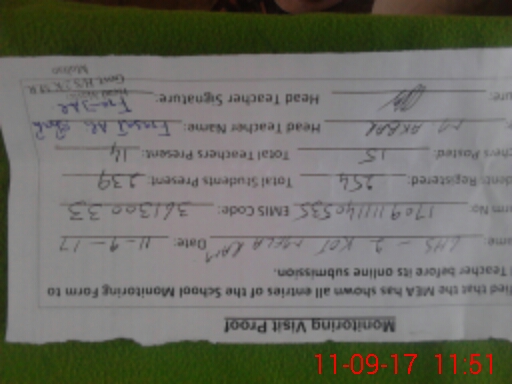 Monitoring Visit Proof
fied that the MEA has shown all entries of the School Monitoring Form to
Teacher before its online submission.
ame: GHS - 2 KOT MELA RAM Date: 11-9-17
orm No: 17091111140535 EMIS Code: 36130033
dents Registered: 254 Total Students Present: 239
chers Posted: 15 Total Teachers Present: 14
M AKBAR Head Teacher Name:
ure: Head Teacher Signature:
11-09-17 11:51